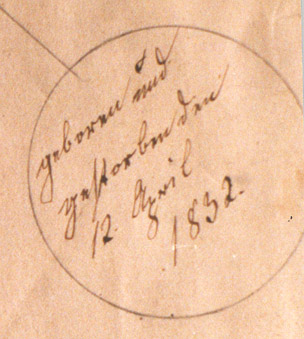 geboren und
gestorben den
12. April
1832.